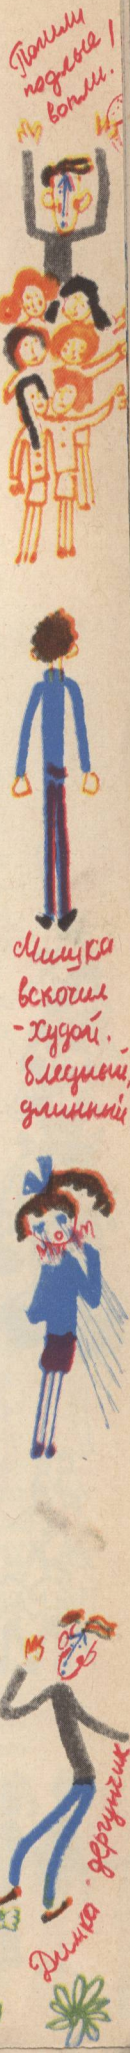 Пошли
подлые
вопли!
Мишка
вскочил
- худой,
бледный,
длинный
Димка - дергунчик